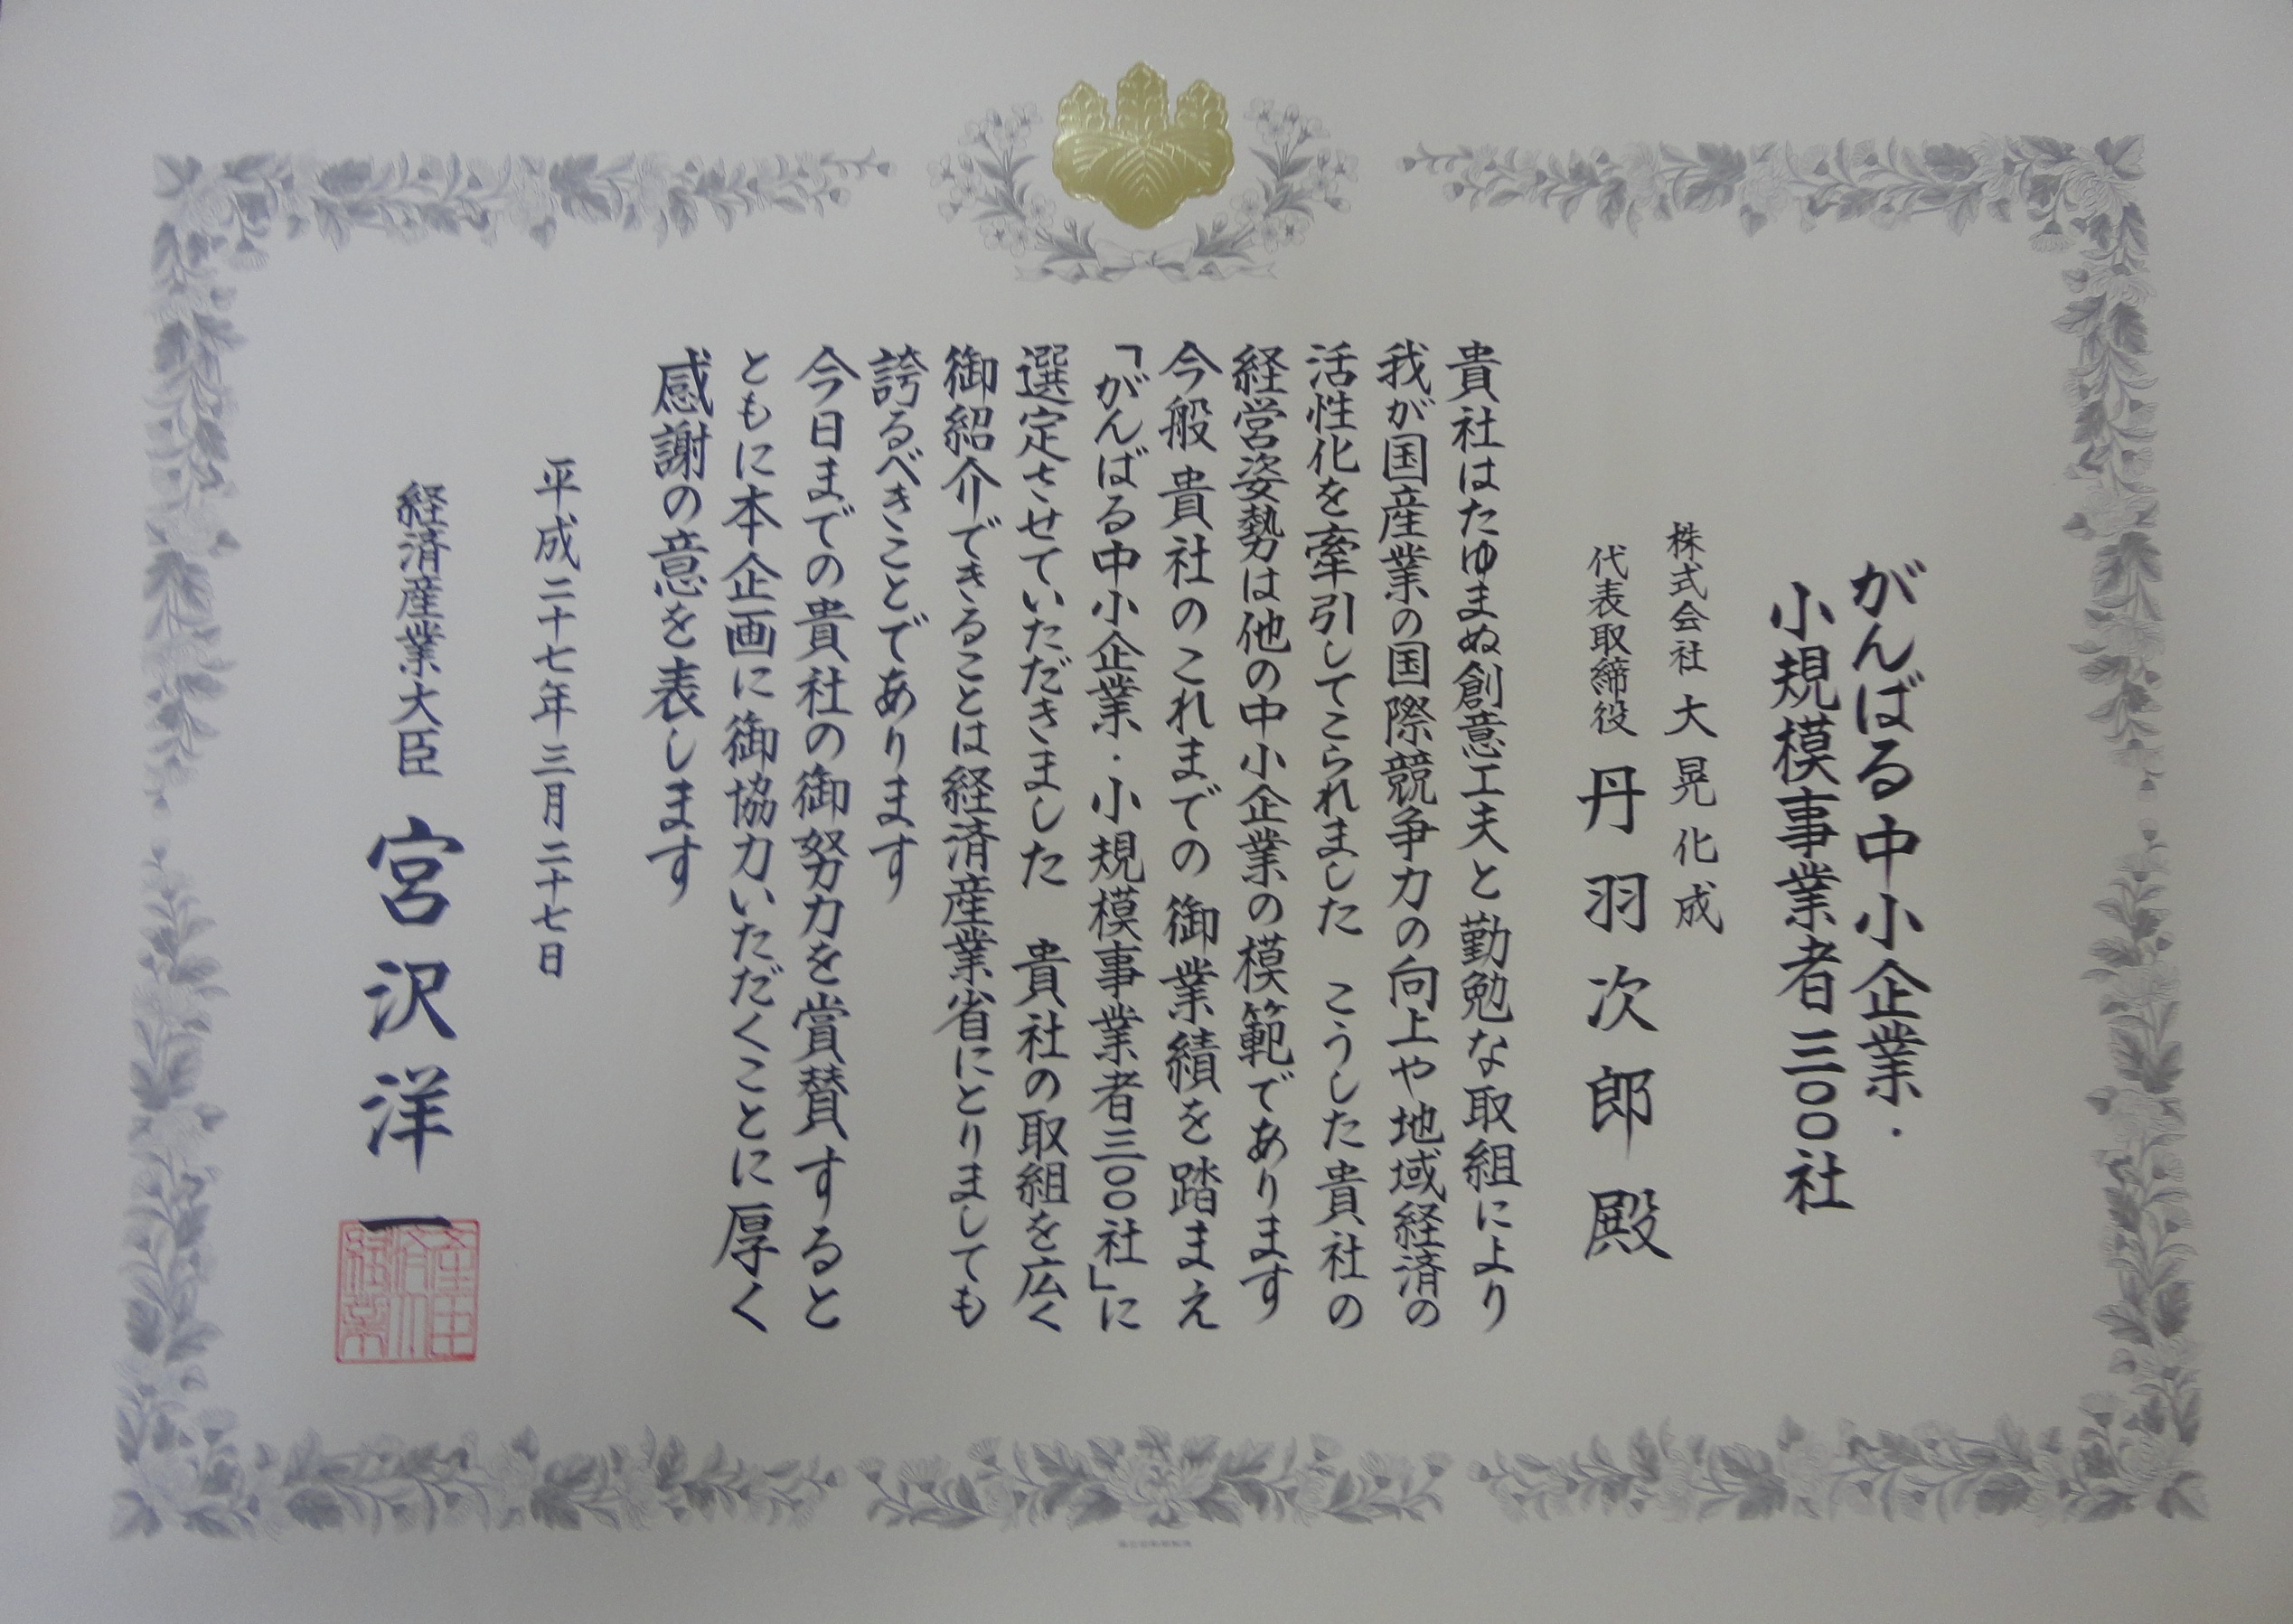 がんばる中小企業・
小規模事業者三〇〇社
株式会社 大晃化成
代表取締役 丹羽次郎殿
貴社はたゆまぬ創意工夫と勤勉な取組により
我が国産業の国際競争力の向上や地域経済の
活性化を牽引してこられました こうした貴社の
経営姿勢は他の中小企業の模範であります
今般貴社のこれまでの御業績を踏まえ
「がんばる中小企業・小規模事業者三〇〇社」に
選定させていただきました 貴社の取組を広く
御紹介できることは経済産業省にとりましても
誇るべきことであります
今日までの貴社の御努力を賞賛すると
ともに本企画に御協力いただくことに厚く
感謝の意を表します
平成二十七年三月二十七日
経済産業大臣 宮沢洋一